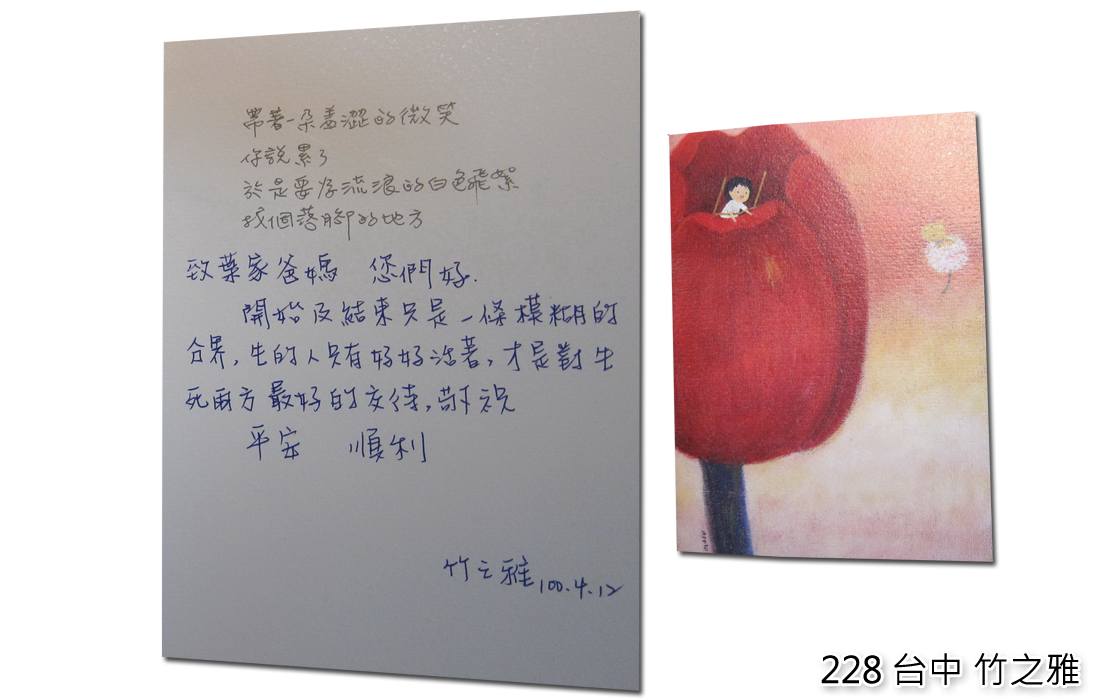 帶著一朵羞澀的微笑
你說累了
於是要為流浪的白色飛絮
找個落腳的地方
致葉家爸媽 您們好.
開始及結束只是一條模糊的
分界,生的人只有好好活著,才是對生
死兩方最好的交待,敬祝
平安 順利
竹之雅 100.4.12
228 台中 竹之雅